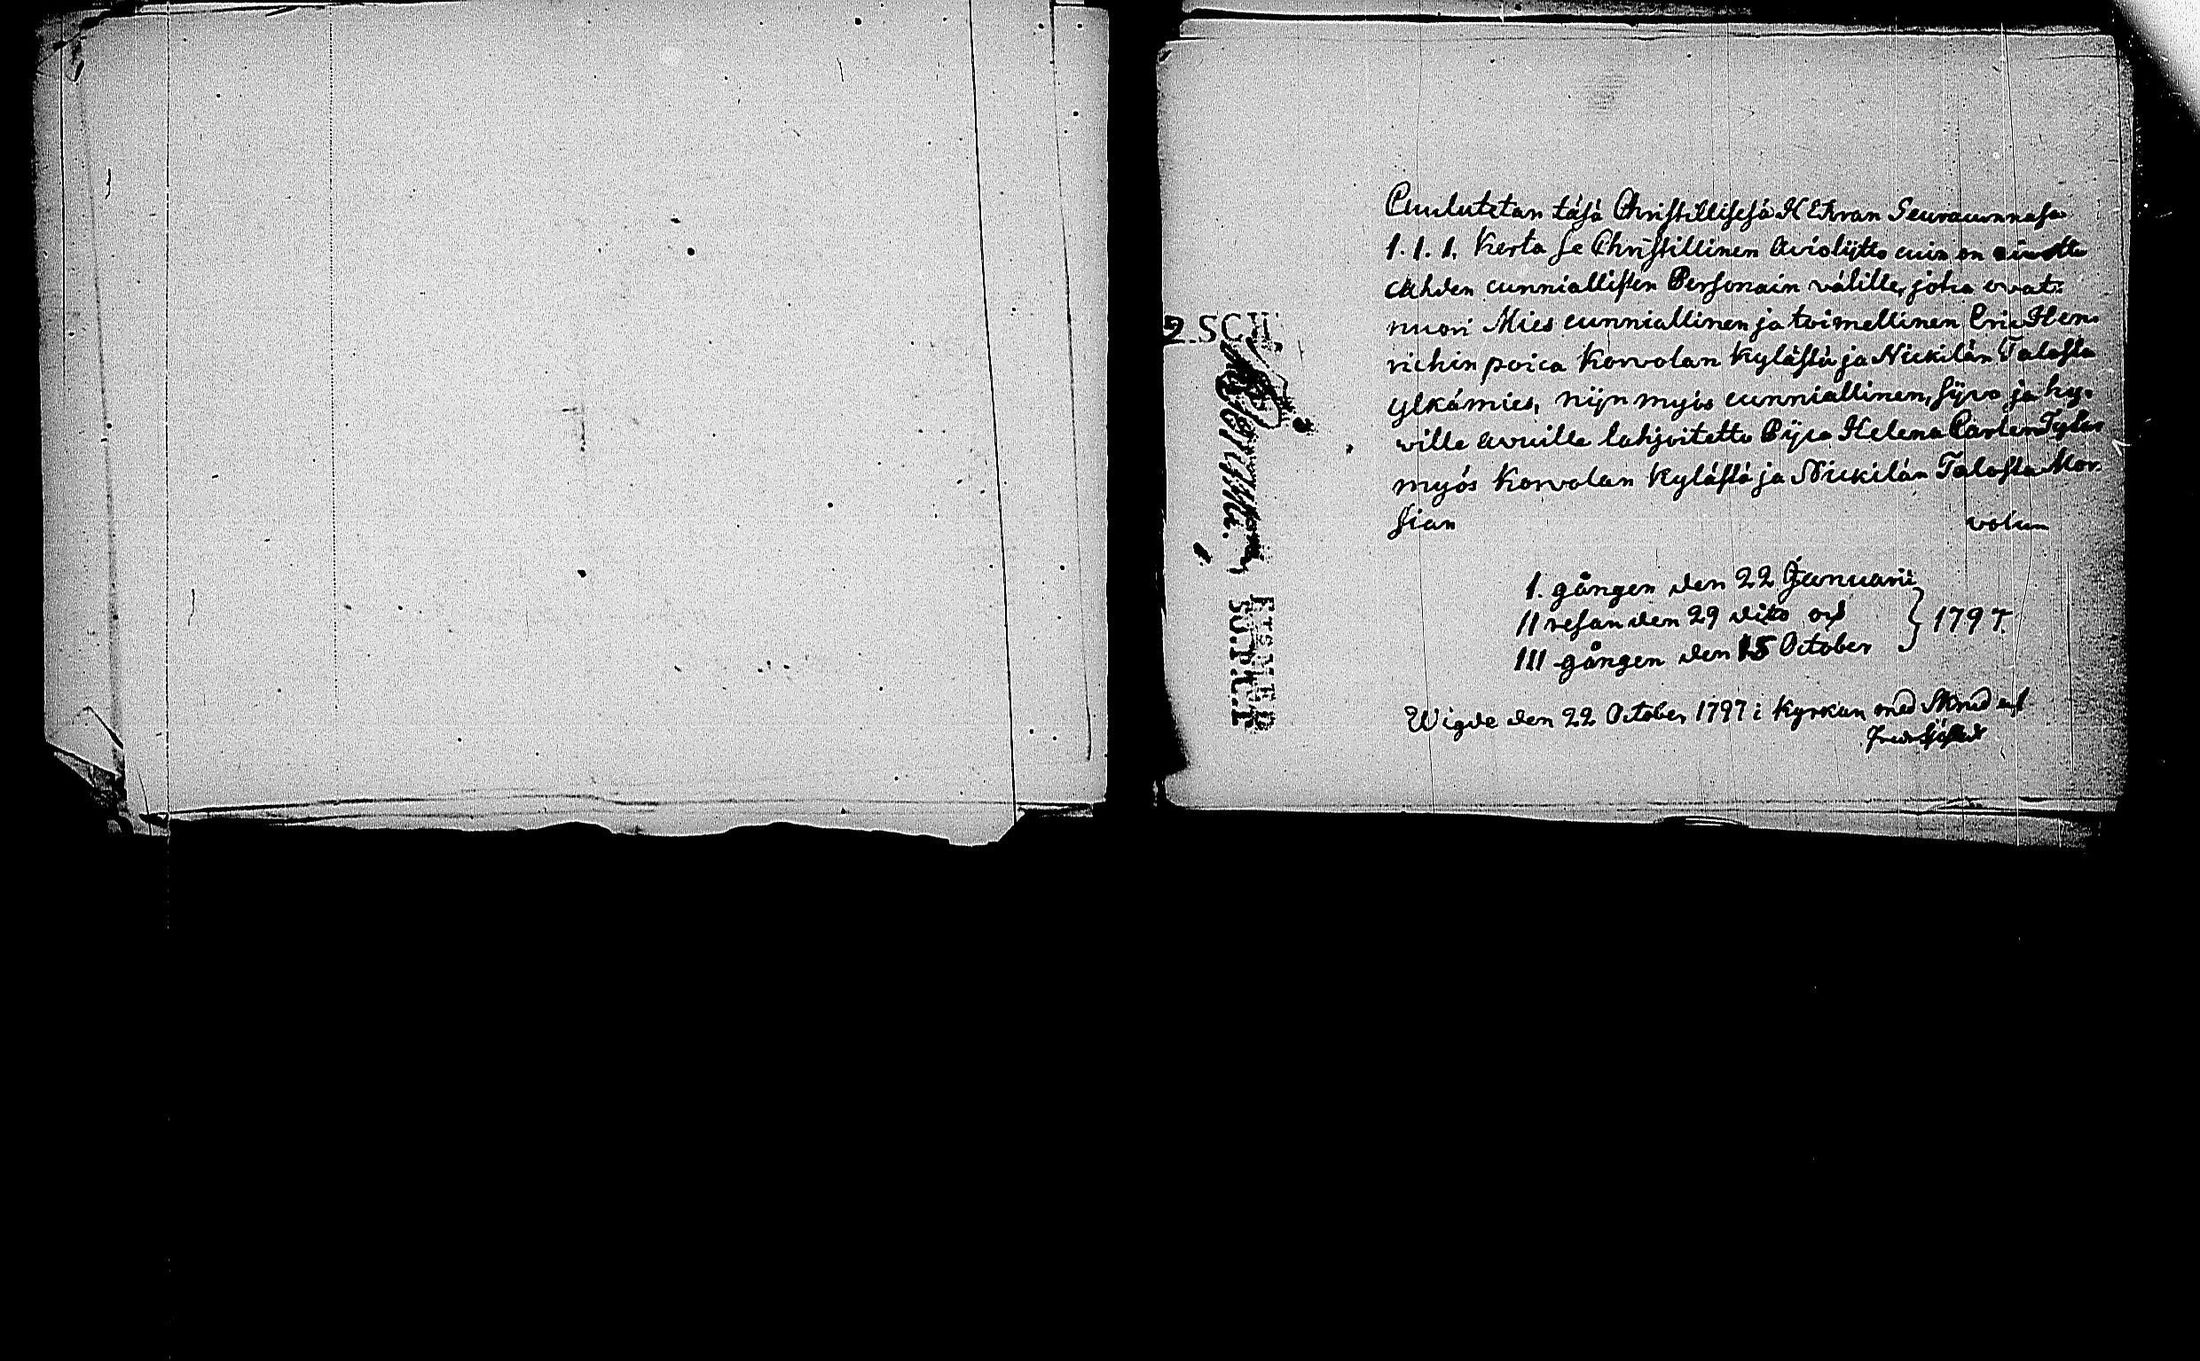 Cuulutetan täsä Christillisesä HERran Seuracunnasa
1. 1. 1. Kerta se Christillinen Aviokäytto cuin on aivottu
cahden cunniallisen Personain välille, jotca ovat:
nuori Mies cunniallinen ja toimellinen Eric Hen-
richin poica Korvolan Kylästä ja Nickilän Talosta
ylkämies, nijn myös cunniallinen, sijvo ja hy-
ville avuille lahjoitettu Pijca Helena Carlen Tytär
myös Korvolan Kylästä ja Nickilän Talosta Mor-
sian
1. gången den 22 Januarii
II resan den 29 dito och
III gången den 15 October
1797.
Wigde den 22 October 1797 i Kyrkan med Skrud af
2. SCH